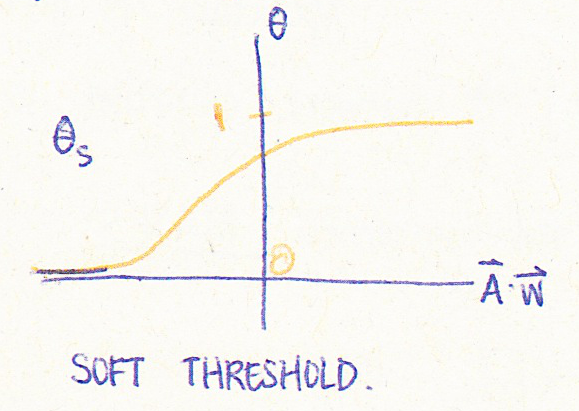 θ
1
θs
0
A⃗·W⃗
SOFT THRESHOLD.